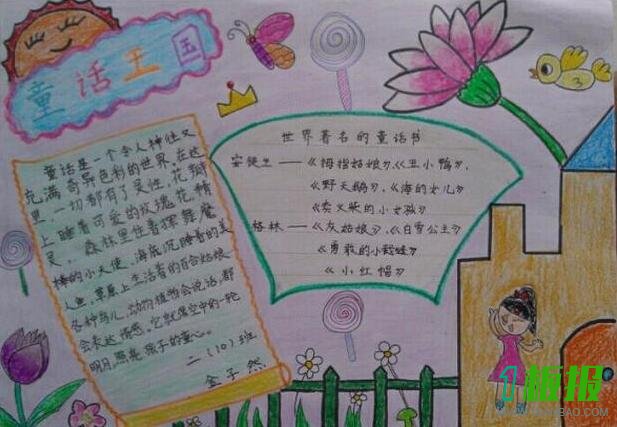 童话王国
童话是一个令人神往又
充满奇异色彩的世界,在这
里,一切都有了灵性,花瓣
上睡着可爱的玫瑰花精
灵,森林里住着挥舞魔
棒的小天使,海底沉睡着的美
人鱼,草原上生活着的百合姑娘
各种鸟儿,动物植物会说话,都
会表达情感。它就像空中的一轮
明月,照亮孩子的童心。
二(10)班
金子然
世界著名的童话书
安徒生——《拇指姑娘》、《丑小鸭》,
《野天鹅》、《海的女儿》
《卖火柴的小女孩》
格林——《灰姑娘》、《白雪公主》
《勇敢的小裁缝》
《小红帽》
板报